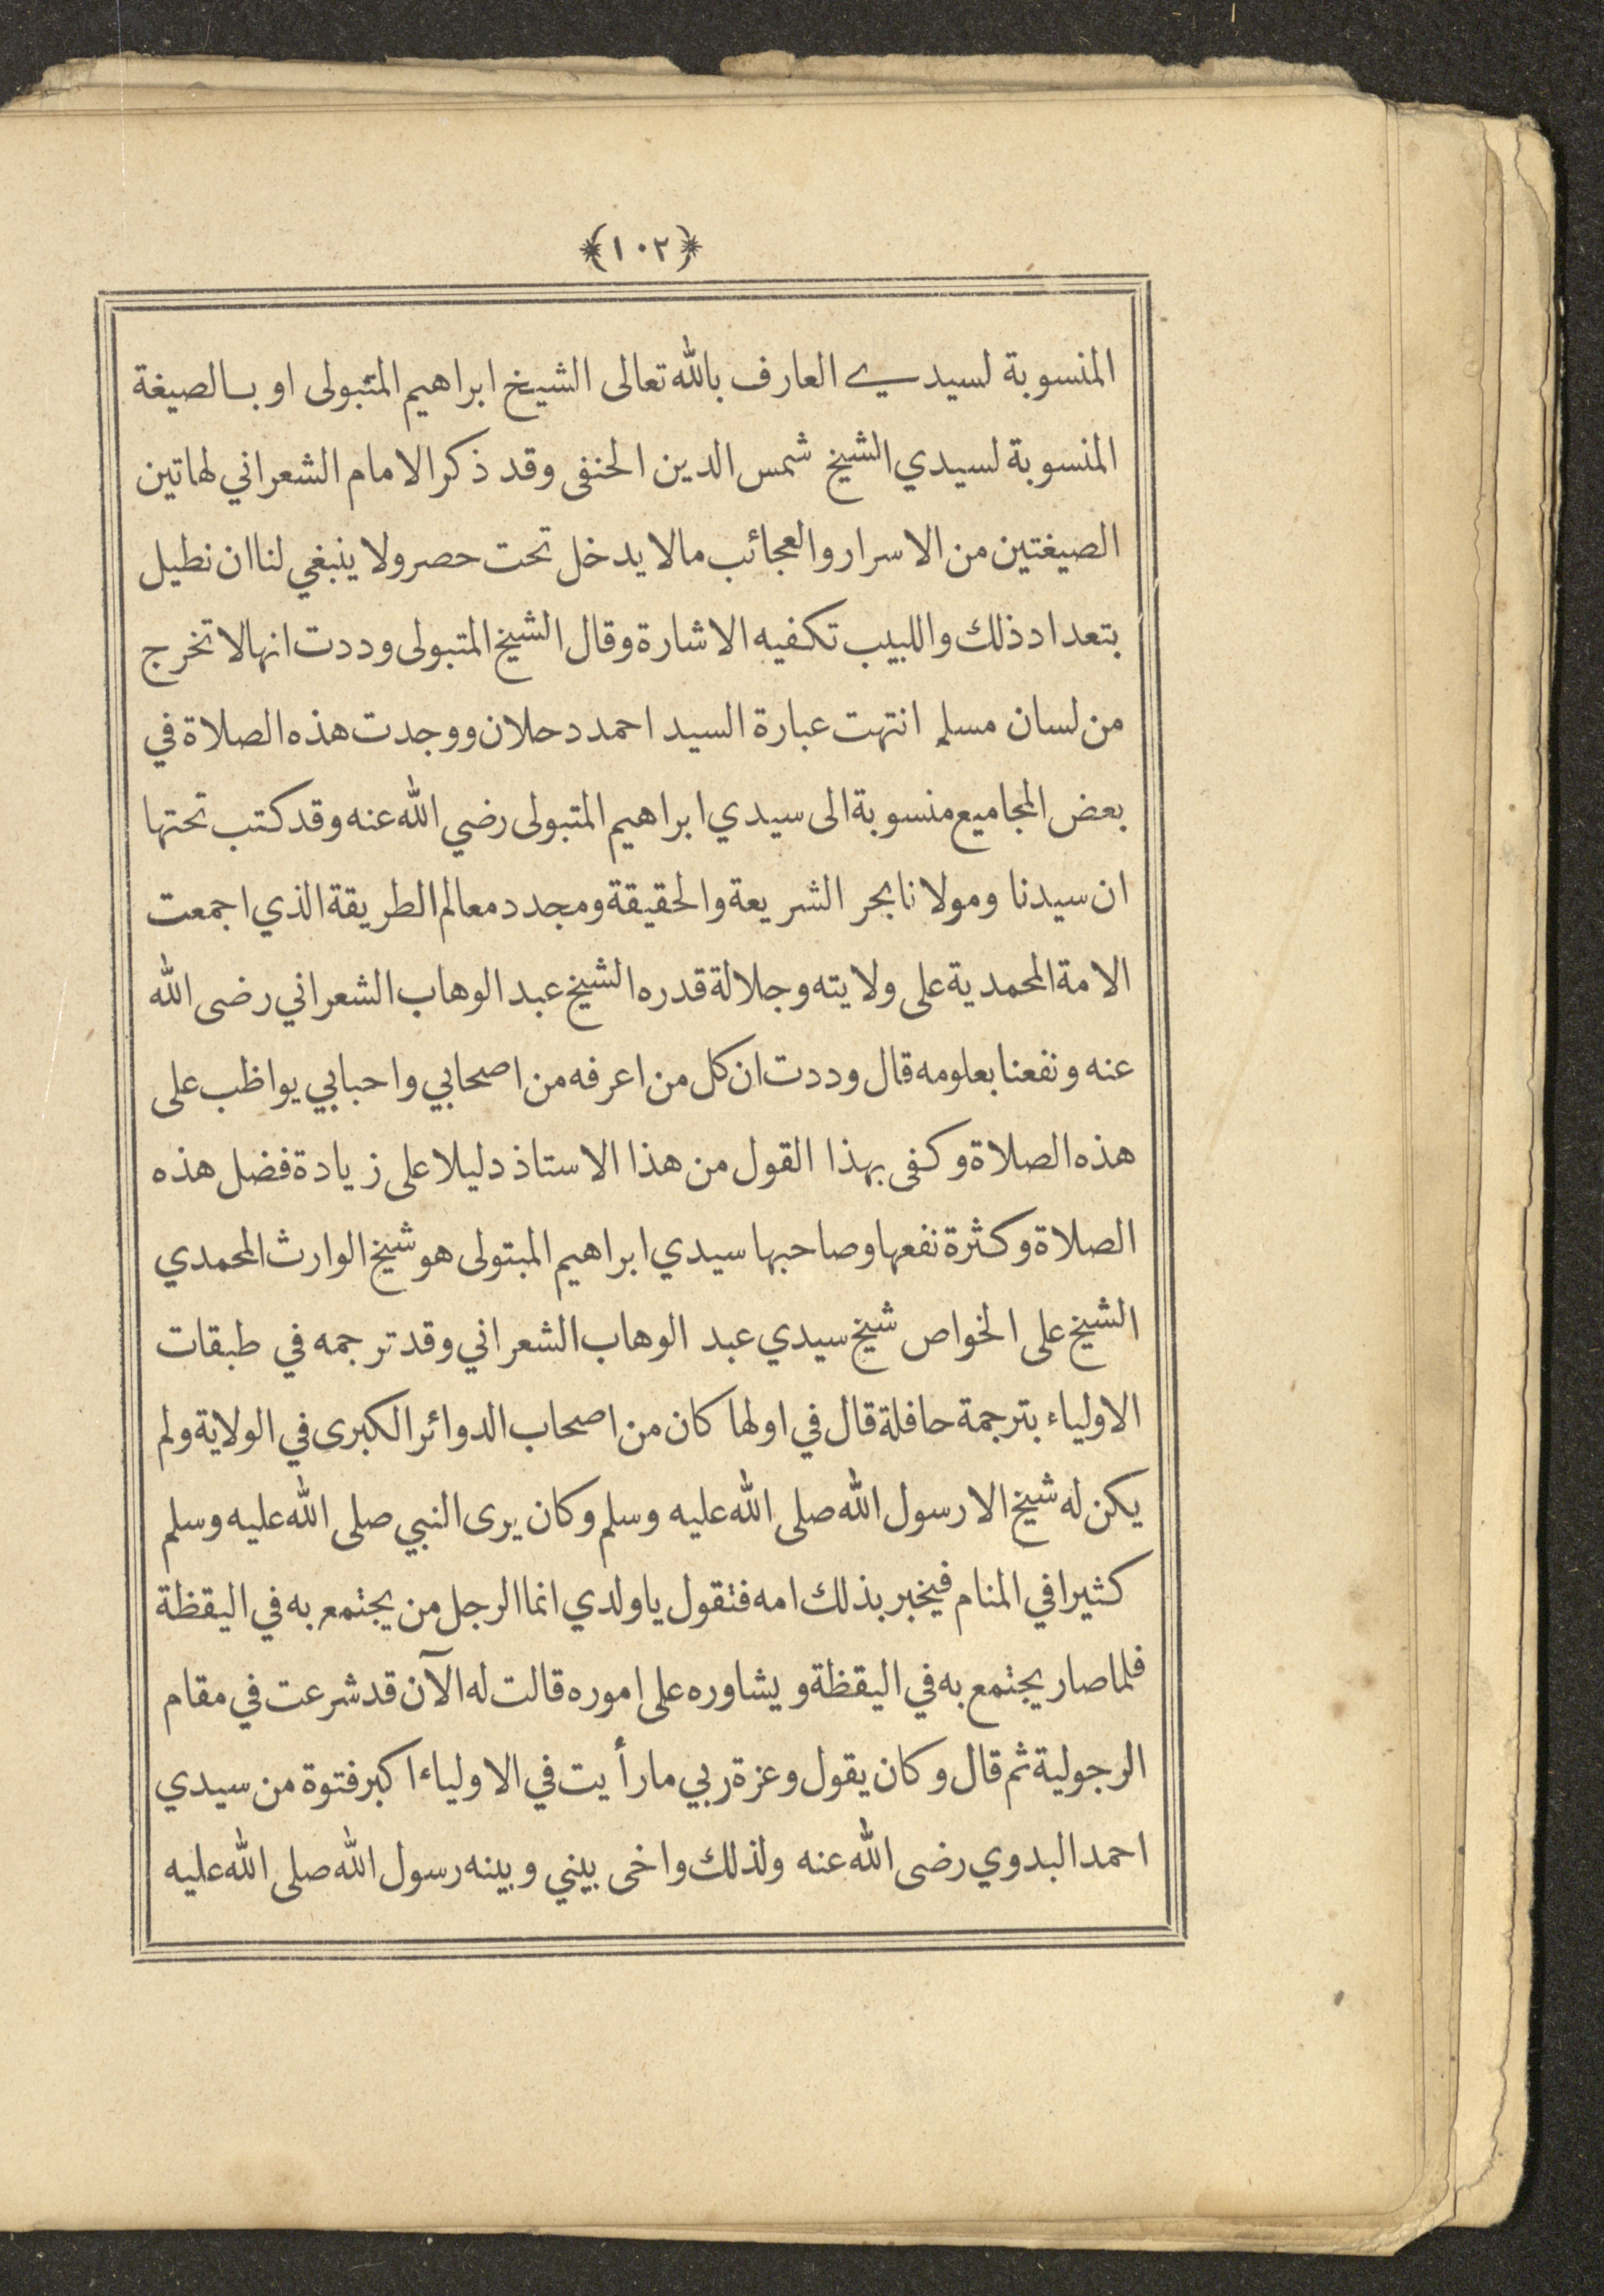 ﴿١٠٢﴾
المنسوبة لسيدي العارف بالله تعالى الشيخ ابراهيم المتبولى او بالصيغة
المنسوبة لسيدي الشيخ شمس الدين الحنفى وقد ذكر الامام الشعراني لهاتين
الصيغتين من الاسرار والعجائب مالا يدخل تحت حصر ولا ينبغي لنا ان نطيل
بتعداد ذلك واللبيب تكفيه الاشارة وقال الشيخ المتبولى وددت انها لا تخرج
من لسان مسلم انتهت عبارة السيد احمد دحلان ووجدت هذه الصلاة في
بعض المجاميع منسوبة الى سيدي ابراهيم المتبولى رضي الله عنه وقد كتب تحتها
ان سيدنا ومولانا بحر الشريعة والحقيقة ومجدد معالم الطريقة الذي اجمعت
الامة المحمدية على ولايته وجلالة قدره الشيخ عبد الوهاب الشعراني رضى الله
عنه ونفعنا بعلومه قال وددت ان كل من اعرفه من اصحابي واحبابي يواظب على
هذه الصلاة وكفى بهذا القول من هذا الاستاذ دليلا على زيادة فضل هذه
الصلاة وكثرة نفعها وصاحبها سيدي ابراهيم المبتولى هو شيخ الوارث المحمدي
الشيخ على الخواص شيخ سيدي عبد الوهاب الشعراني وقد ترجمه في طبقات
الاولياء بترجمة حافلة قال في اولها كان من اصحاب الدوائر الكبرى في الولاية ولم
يكن له شيخ الا رسول الله صلى الله عليه وسلم وكان يرى النبي صلى الله عليه وسلم
كثيرا في المنام فيخبر بذلك امه فتقول يا ولدي انما الرجل من يجتمع به في اليقظة
فلما صار يجتمع به في اليقظة ويشاوره على اموره قالت له الآن قد شرعت في مقام
الرجولية ثم قال وكان يقول وعزة ربي ما رأيت في الاولياء اكبر فتوة من سيدي
احمد البدوي رضى الله عنه ولذلك واخى بيني وبينه رسول الله صلى الله عليه